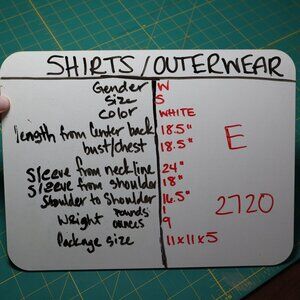 SHIRTS/OUTERWEAR
Gender W
Size S
Color WHITE
length from Center back 18.5"
bust/chest 18.5"
E
Sleeve from neckline 24"
Sleeve from shoulder 18"
Shoulder to Shoulder 16.5"
2720
Weight pounds 1
ounces 9
Package size 11x11x5